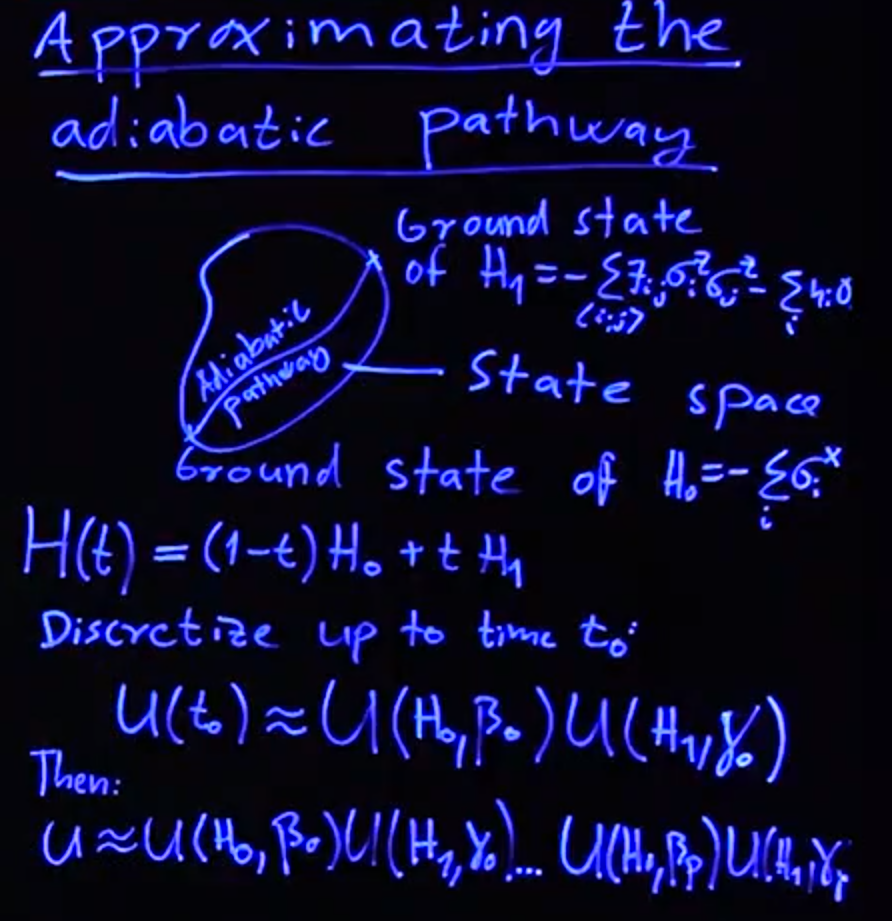 Approximating the
adiabatic pathway
Ground state
of H₁ = - Σ J_ij σ_i^z σ_j^z - Σ h_i σ
<i,j> i
Adiabatic
pathway
State space
Ground state of H₀ = - Σ σ_i^x
i
H(t) = (1-t) H₀ + t H₁
Discretize up to time t₀:
U(t₀) ≈ U(H₀, β₀) U(H₁, γ₀)
Then:
U ≈ U(H₀, β₀) U(H₁, γ₀) ... U(H₀, β_p) U(H₁, γ_p